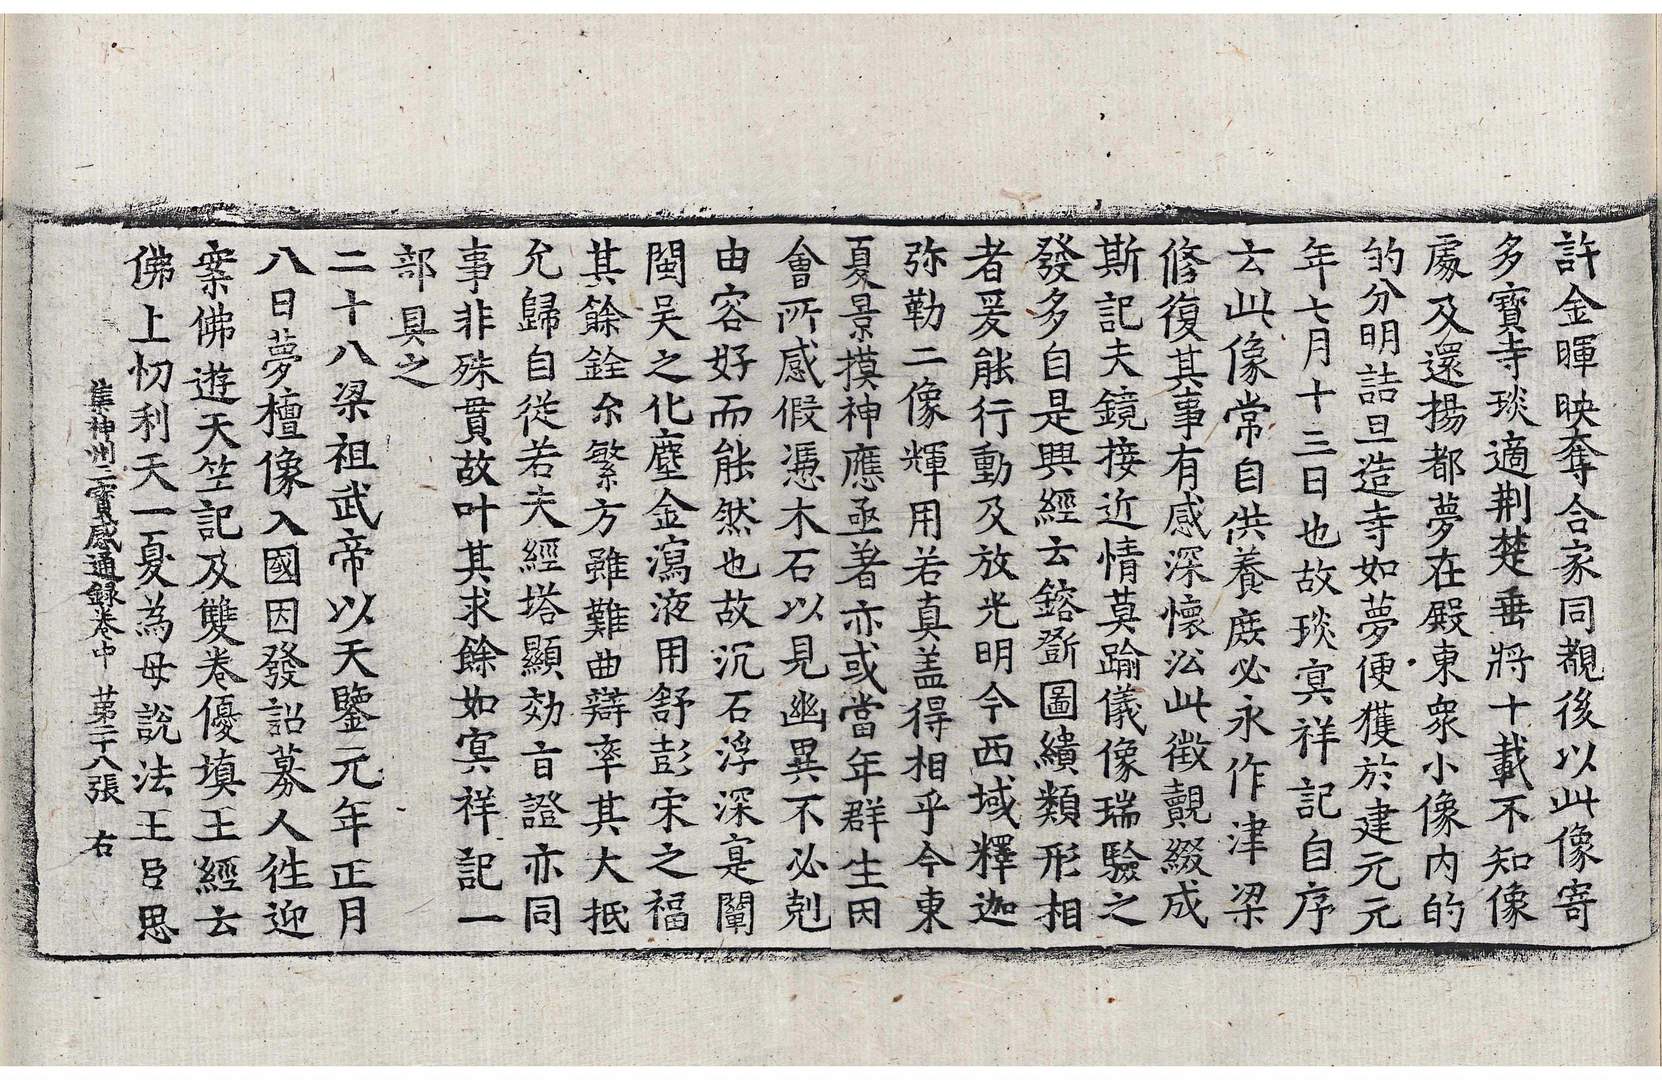 許金暉映奪合家同覩後以此像寄
多寶寺琰適荆楚垂將十載不知像
處及還揚都夢在殿東衆小像内的
的分明詰旦造寺如夢便獲於建元元
年七月十三日也故琰冥祥記自序
云此像常自供養庶必永作津梁
修復其事有感深懷㳂此徵覿綴成
斯記夫鏡接近情莫踰儀像瑞驗之
發多自是興經云鎔斵圖繢類形相
者爰能行動及放光明今西域釋迦
弥勒二像輝用若真盖得相乎今東
夏景摸神應亟著亦或當年群生因
會所感假憑木石以見幽異不必剋
由容好而能然也故沉石浮深寔闡
閩吴之化塵金瀉液用舒彭宋之福
其餘銓尒繁方雖難曲辯率其大抵
允歸自從若夫經塔顯効㫖證亦同
事非殊貫故叶其求餘如冥祥記一
部具之
二十八梁祖武帝以天鑒元年正月
八日夢檀像入國因發詔募人徃迎
案佛遊天竺記及雙卷優填王經云
佛上忉利天一夏為母說法王臣思
集神州三寶感通録卷中　苐二十八張　右